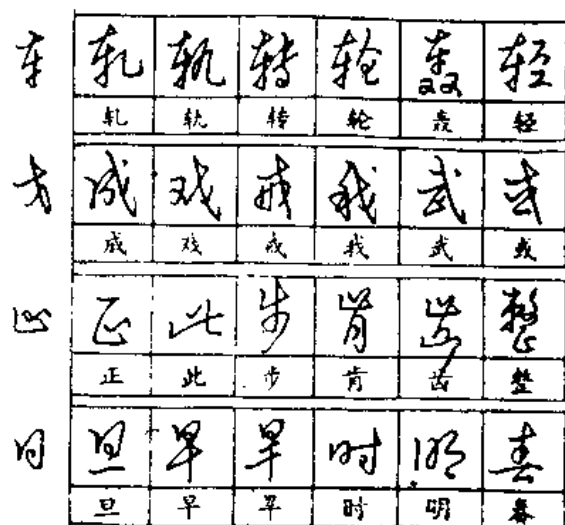 车 轧 轨 转 轮 轰 轻
轧 轨 转 轮 轰 轻
戈 成 戏 戒 我 武 或
成 戏 戒 我 武 或
止 正 此 步 肯 齿 整
正 此 步 肯 齿 整
日 旦 早 旱 时 明 春
旦 早 旱 时 明 春